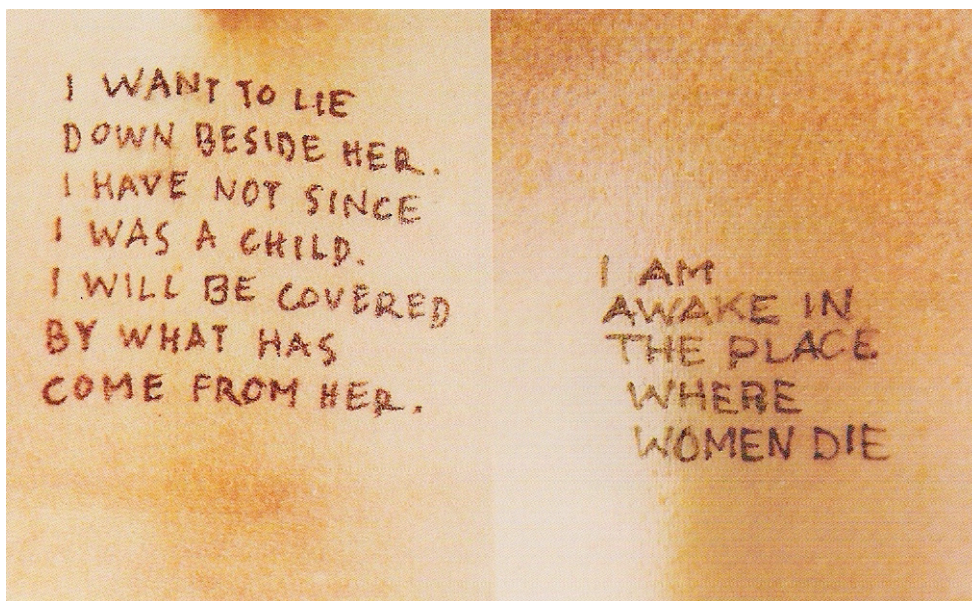 I WANT TO LIE
DOWN BESIDE HER.
I HAVE NOT SINCE
I WAS A CHILD.
I WILL BE COVERED
BY WHAT HAS
COME FROM HER.
I AM
AWAKE IN
THE PLACE
WHERE
WOMEN DIE